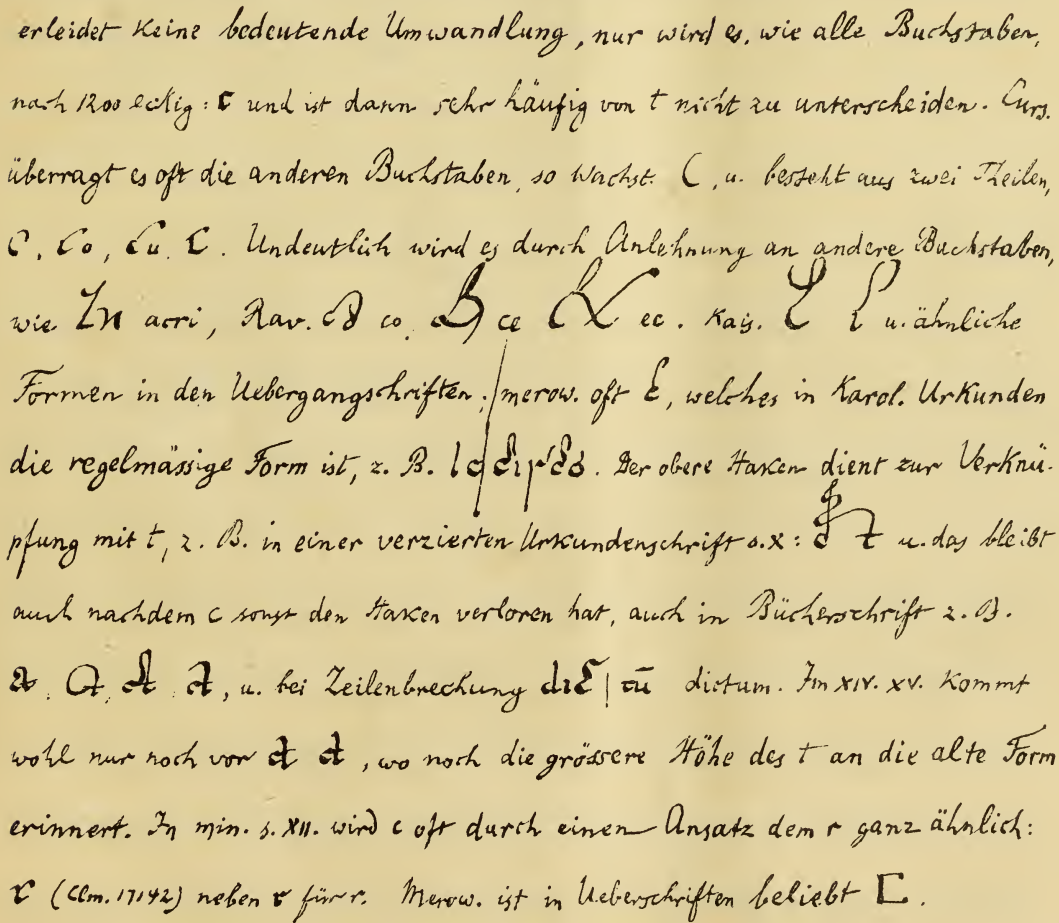 erleidet keine bedeutende Umwandlung, nur wird es, wie alle Buchstaben,
nach 1200 eckig: c und ist dann sehr häufig von t nicht zu unterscheiden. Curs.
überragt es oft die anderen Buchstaben, so Wachst. C, u. besteht aus zwei Theilen,
C, Co, Cu, C. Undeutlich wird es durch Anlehnung an andere Buchstaben,
wie acri, Rav. co, ce ec. Kais. u. ähnliche
Formen in den Uebergangschriften; merow. oft, welches in Karol. Urkunden
die regelmässige Form ist, z. B. Der obere Haken dient zur Verknü-
pfung mit t, z. B. in einer verzierten Urkundenschrift s. X: u. das bleibt
auch nachdem c sonst den Haken verloren hat, auch in Bücherschrift z. B.
ct, ct, ct, ct, u. bei Zeilenbrechung dic | tū dictum. Im XIV. XV. kommt
wohl nur noch vor ct ct, wo noch die grössere Höhe des t an die alte Form
erinnert. In min. s. XII. wird c oft durch einen Ansatz dem r ganz ähnlich:
c (Clm. 17142) neben r für r. Merow. ist in Ueberschriften beliebt C.